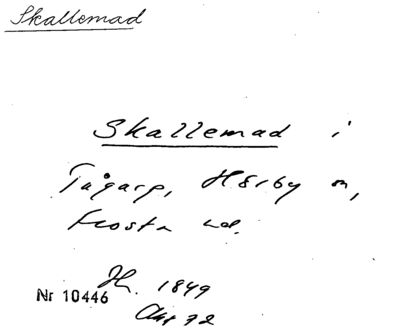 Skallemad
Skallemad i
Tågarp, Hörby sn,
Frosta hd.
Jh. 1849
Nr 10446
Akt 72